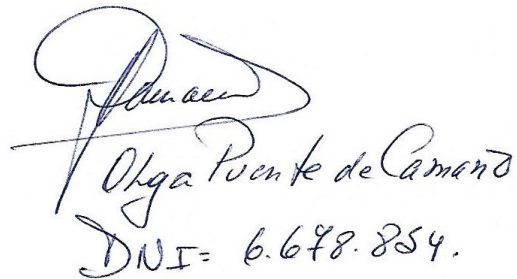 Olga Puente de Camaño
DNI= 6.678.854.